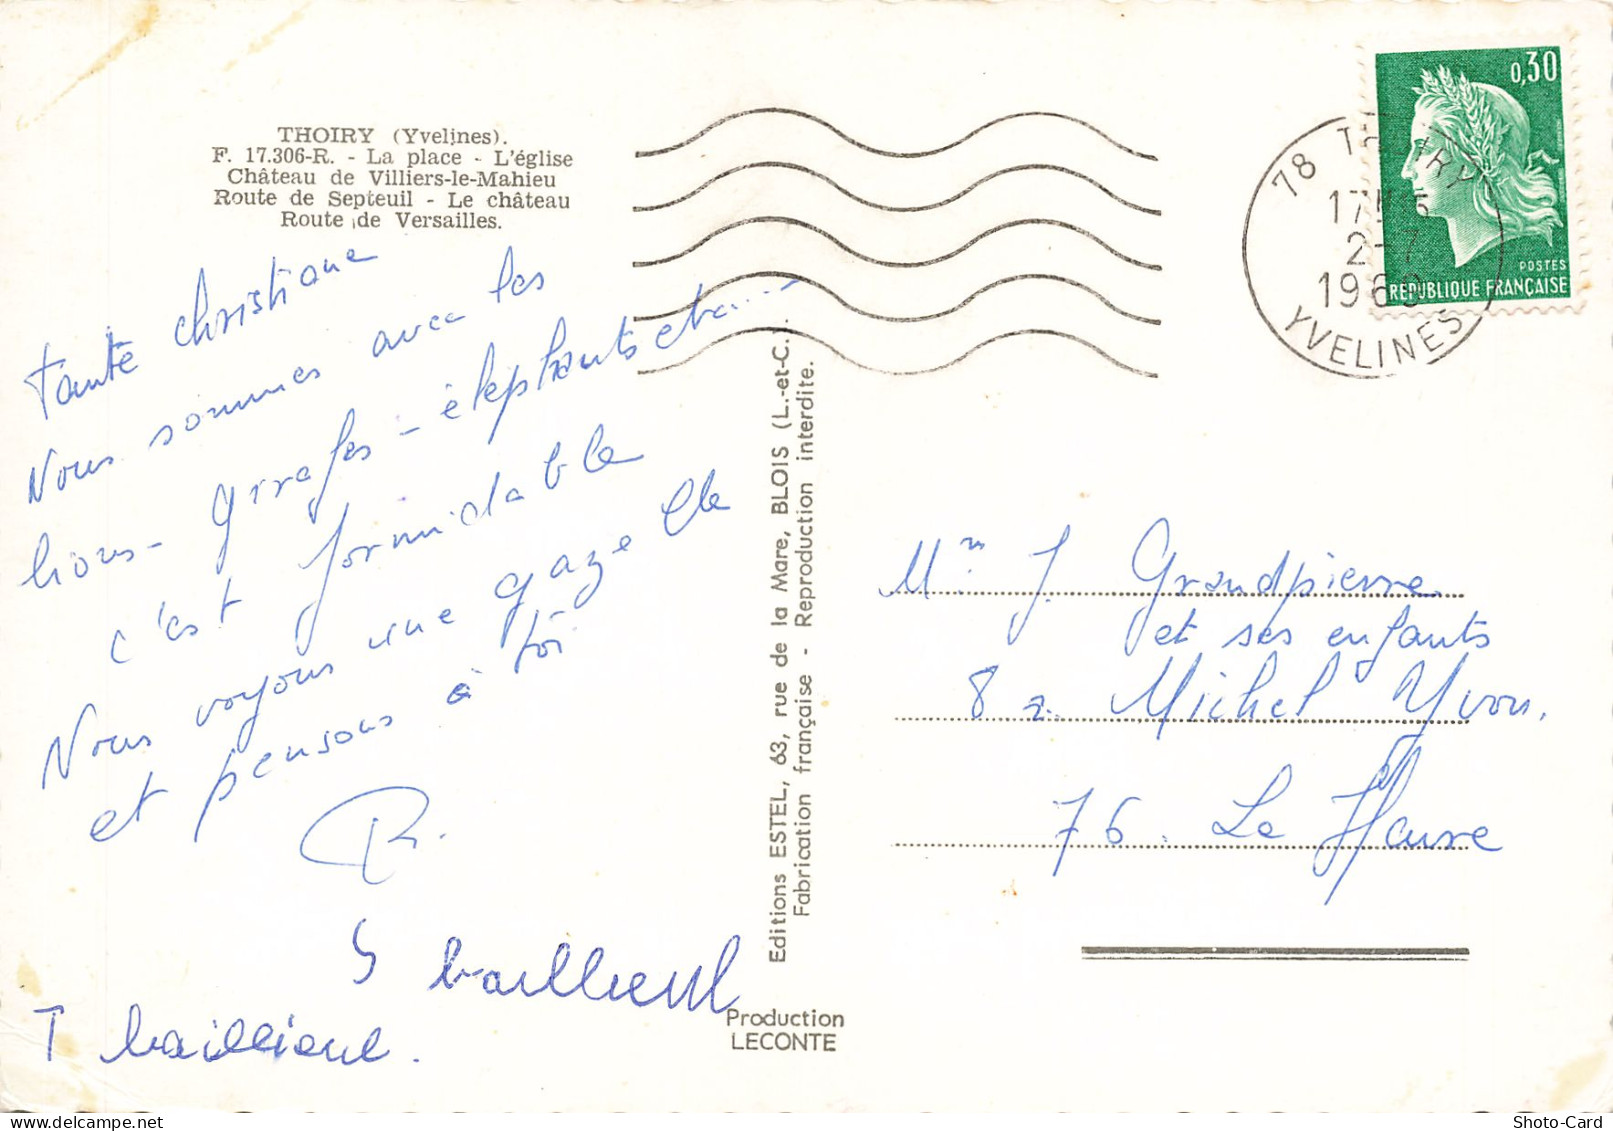 THOIRY (Yvelines).
F. 17.306-R. - La place - L'église
Château de Villiers-le-Mahieu
Route de Septeuil - Le château
Route de Versailles.
Tante christiane
Nous sommes avec les
lions - girafes - éléphants etc....
c'est formidable
Nous voyons une gazelle
et pensons à toi
R.
S bailleul
T bailleul.
Editions ESTEL, 63, rue de la Mare, BLOIS (L.-et-C.)
Fabrication française - Reproduction interdite.
Production
LECONTE
0,30
POSTES
REPUBLIQUE FRANÇAISE
78 THOIRY
17H
2-7
1969
YVELINES
Mme J. Grandpierre
et ses enfants
8 r. Michel Yvon.
76. Le Havre
Shoto-Card